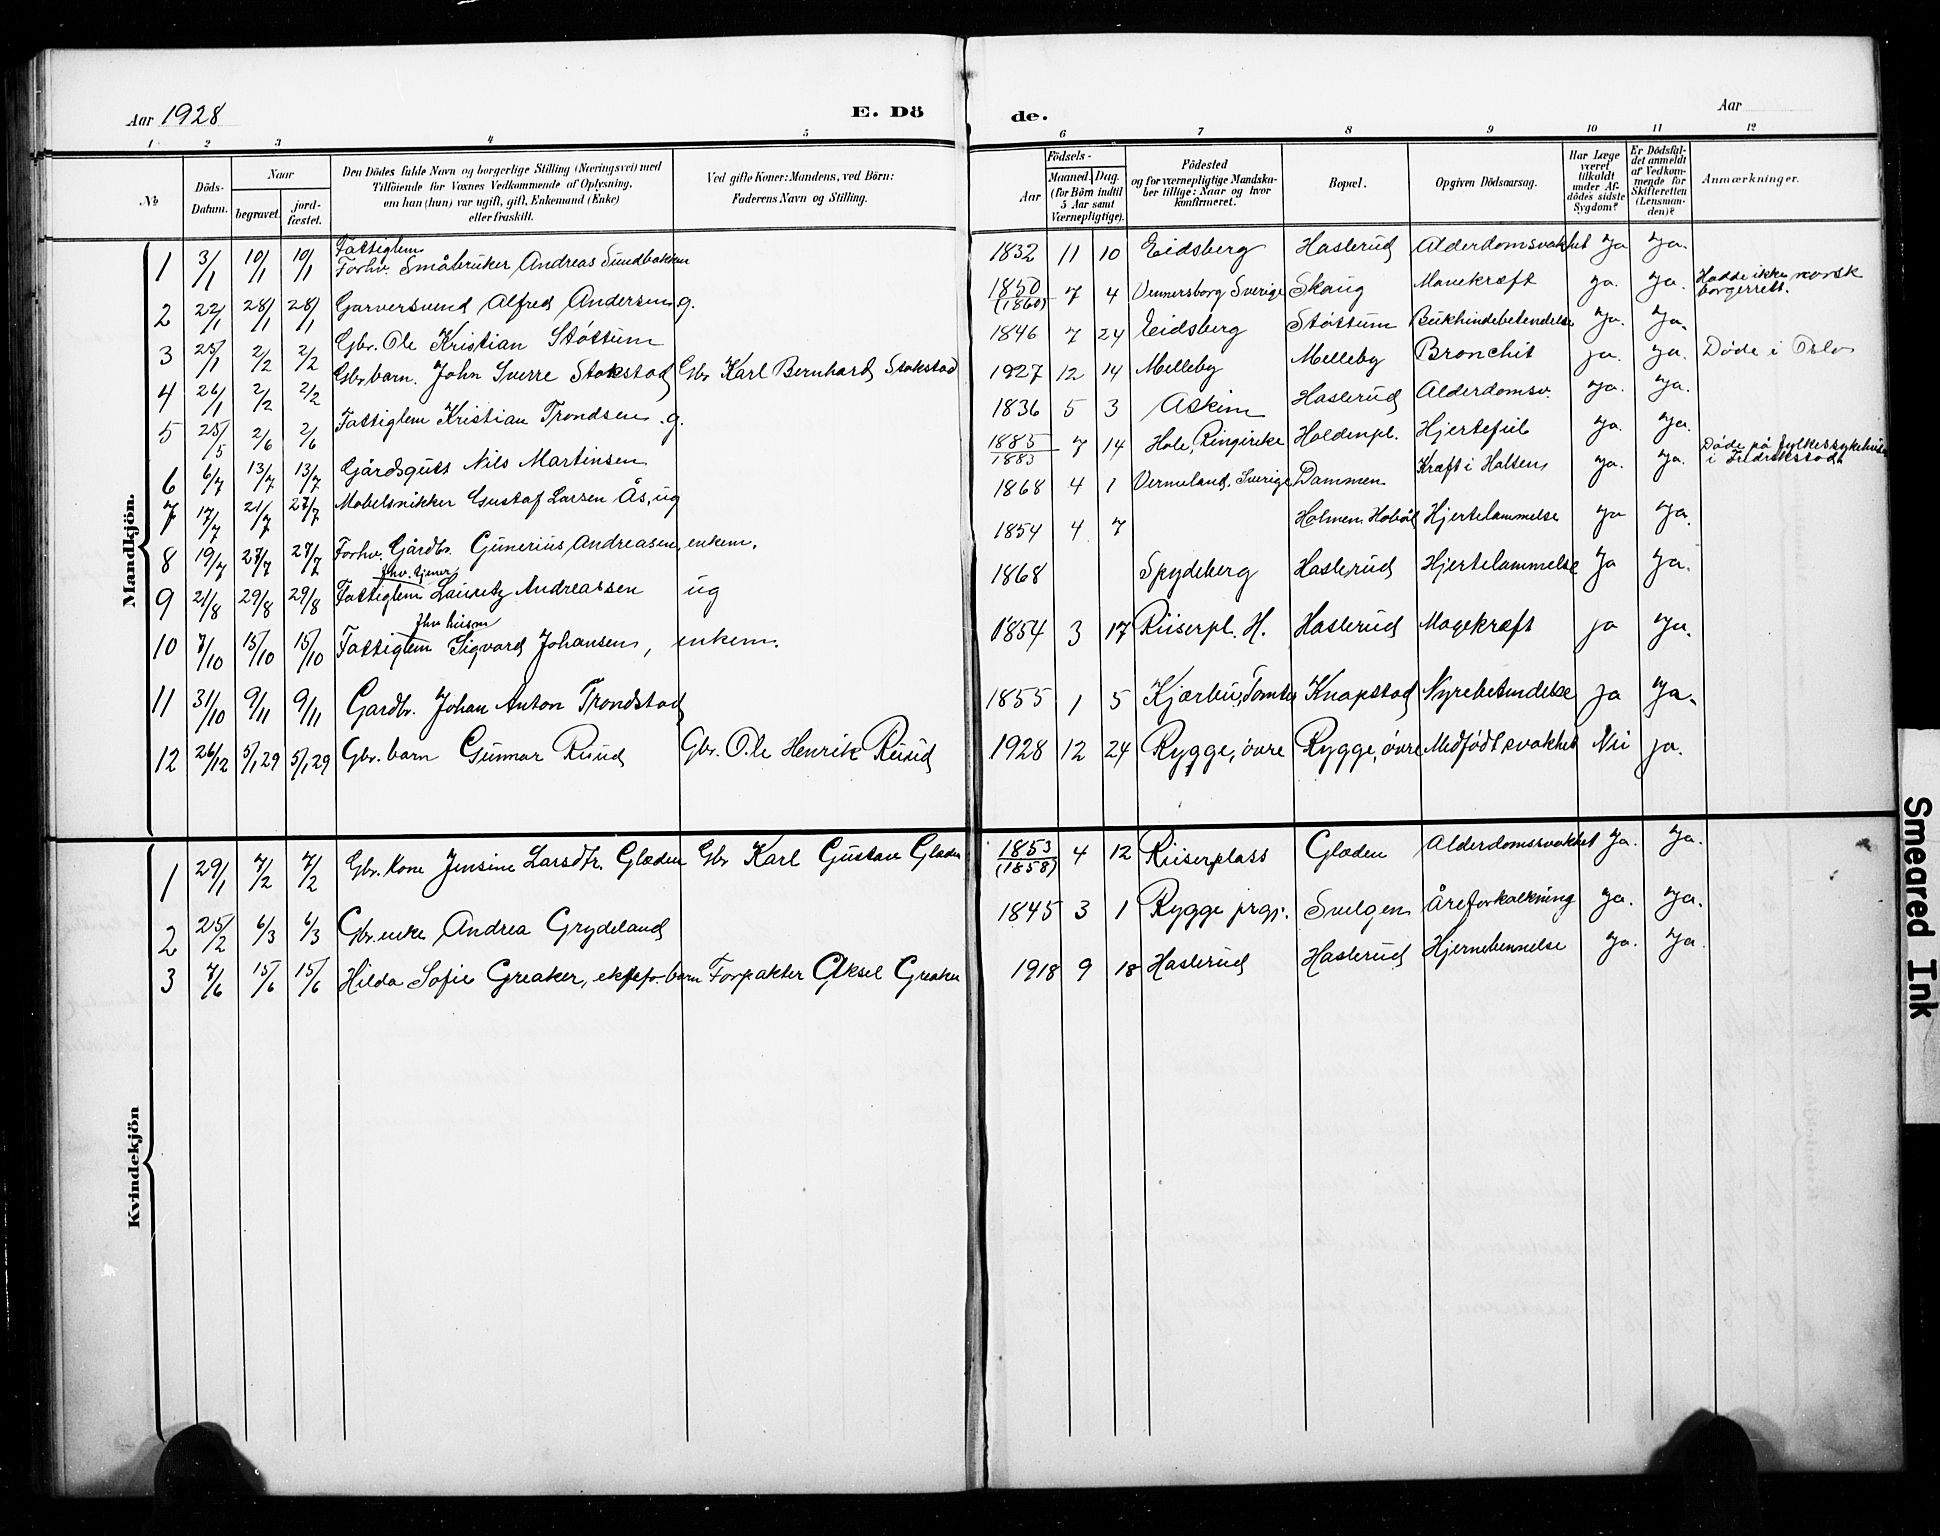 Aar 1928 E. Dö de. Aar
1 2 3 4 5 6 7 8 9 10 11 12
№ Döds-Datum. Naar begravet. jord-fæstet. Den Dödes fulde Navn og borgerlige Stilling (Næringsvei) med Tilföiende for Voxnes Vedkommende af Oplysning, om han (hun) var ugift, gift, Enkemand (Enke) eller fraskilt. Ved gifte Koner: Mandens, ved Börn: Faderens Navn og Stilling. Födsels- Aar Maaned. Dag. (for Börn indtil 5 Aar samt Værnepligtige). Födested og for værnepligtige Mandskaber tillige: Naar og hvor konfirmeret. Bopæl. Opgiven Dödsaarsag. Har Læge været tilkaldt under Afdödes sidste Sygdom? Er Dödsfaldet anmeldt af Vedkommende for Skifteretten (Lensmanden)? Anmærkninger.
Mandkjön.
1 3/1 10/1 10/1 Fattiglem Forhv. Småbruker Andreas Sundbakken 1832 11 10 Eidsberg Haslerud Alderdomsvakhet Ja Ja.
2 22/1 28/1 28/1 Garversvend Alfred Andersen g. 1850 (1860) 7 4 Vennersborg Sverige Skaug Mavekræft ja. ja. Hadde ikke norsk borgerrett.
3 25/1 2/2 2/2 Gbr. Ole Kristian Støttum 1846 7 24 Eidsberg Støttum Bukhindebetendelse Ja. Ja.
4 26/1 2/2 2/2 Gbr barn. John Sverre Stokstad Gbr Karl Bernhard Stokstad 1927 12 14 Melleby Melleby Bronchit ja. ja. Døde i Oslo
5 25/5 2/6 2/6 Fattiglem Kristian Trondsen. g. 1836 5 3 Askim Haslerud Alderdomsv. Ja. Ja.
6 6/7 13/7 13/7 Gårdsgutt Nils Martinsen 1885 1883 7 14 Hole, Ringirike Holdenpl. Hjertefeil Ja. Ja.
7 17/7 21/7 21/7 Møbelsnikker Gustaf Larsen Ås, ug 1868 4 1 Vermeland, Sverige Dammen Kræft i Halsen Ja. Ja. Døde på fylkessykehuset i Fredrikstad
8 19/7 27/7 27/7 Forhv. Gårdbr. Gunerius Andreasen, enkem. 1854 4 7 Holmen Hobøl Hjertelammelse Ja Ja.
9 21/8 29/8 29/8 fhv. tjener Fattiglem Lauritz Andreassen ug 1868 Spydeberg Haslerud Hjertelammelse Ja Ja.
10 7/10 15/10 15/10 fhv husm Fattiglem Sigvard Johansen, enkem. 1854 3 17 Riiserpl. H. Haslerud Mavekræft ja Ja.
11 31/10 9/11 9/11 Gardbr. Johan Anton Trondstad 1855 1 5 Kjærbu, Tomter Knapstad Nyrebetendelse ja Ja.
12 26/12 5/1 29 5/1 29 Gbr. barn Gunnar Ruud Gbr. Ole Henrik Ruud 1928 12 24 Rygge, övre Rygge, övre Medfødt svakhet Nei ja.
Kvindekjön
1 29/1 7/2 7/2 Gbr. kone Jensine Larsdtr. Glæden Gbr Karl Gustav Glæden 1853 (1858) 4 12 Riiserplass Glæden Alderdomssvakhet Ja. Ja.
2 25/2 6/3 6/3 Gbr. enke Andrea Grydeland 1845 3 1 Rygge prgj. Svelgen Åreforkalkning Ja. Ja.
3 7/6 15/6 15/6 Hilda Sofie Greaker, barn Forpakter Aksel Greaker 1918 9 18 Haslerud Haslerud Hjernebetennelse Ja. Ja.
Smeared Ink